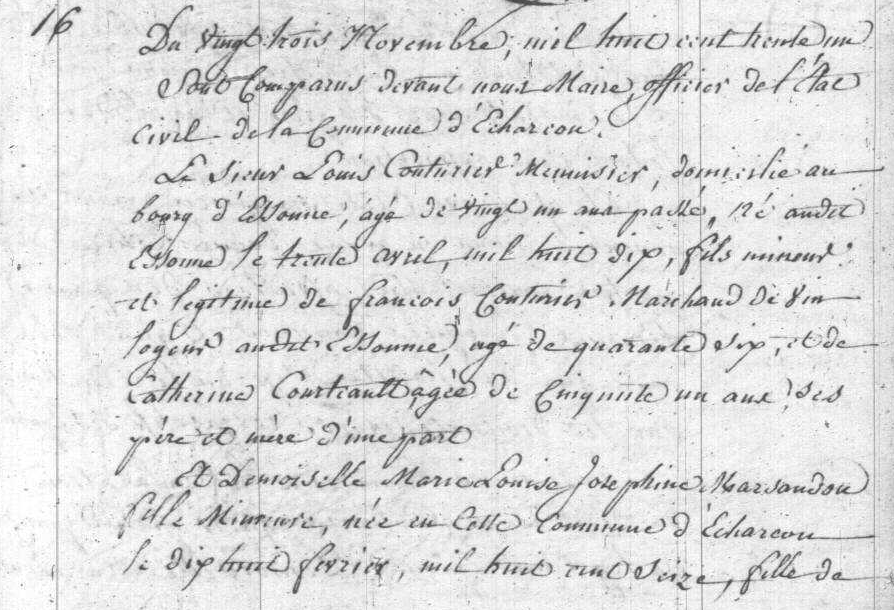 16
Du vingt trois Novembre, mil huit cent trente un
Sont Comparus devant nous Maire, officier de l'État
Civil de la Commune d'Echarcon.
Le Sieur Louis Couturier Menuisier, domicilié au
bourg d'Essonne, âgé de vingt un ans passé, né audit
Essonne le trente avril, mil huit dix, fils mineur
et legitime de françois Couturier Marchand de Vin
logeur audit Essonne, agé de quarante six, et de
Catherine Courteault âgée de Cinquante un ans, ses
père et mère d'une part
Et Demoiselle Marie Louise Josephine Marsaudon
fille Mineure, née en Cette Commune d'Echarcon
le dix huit fevrier, mil huit cent Seize, fille de